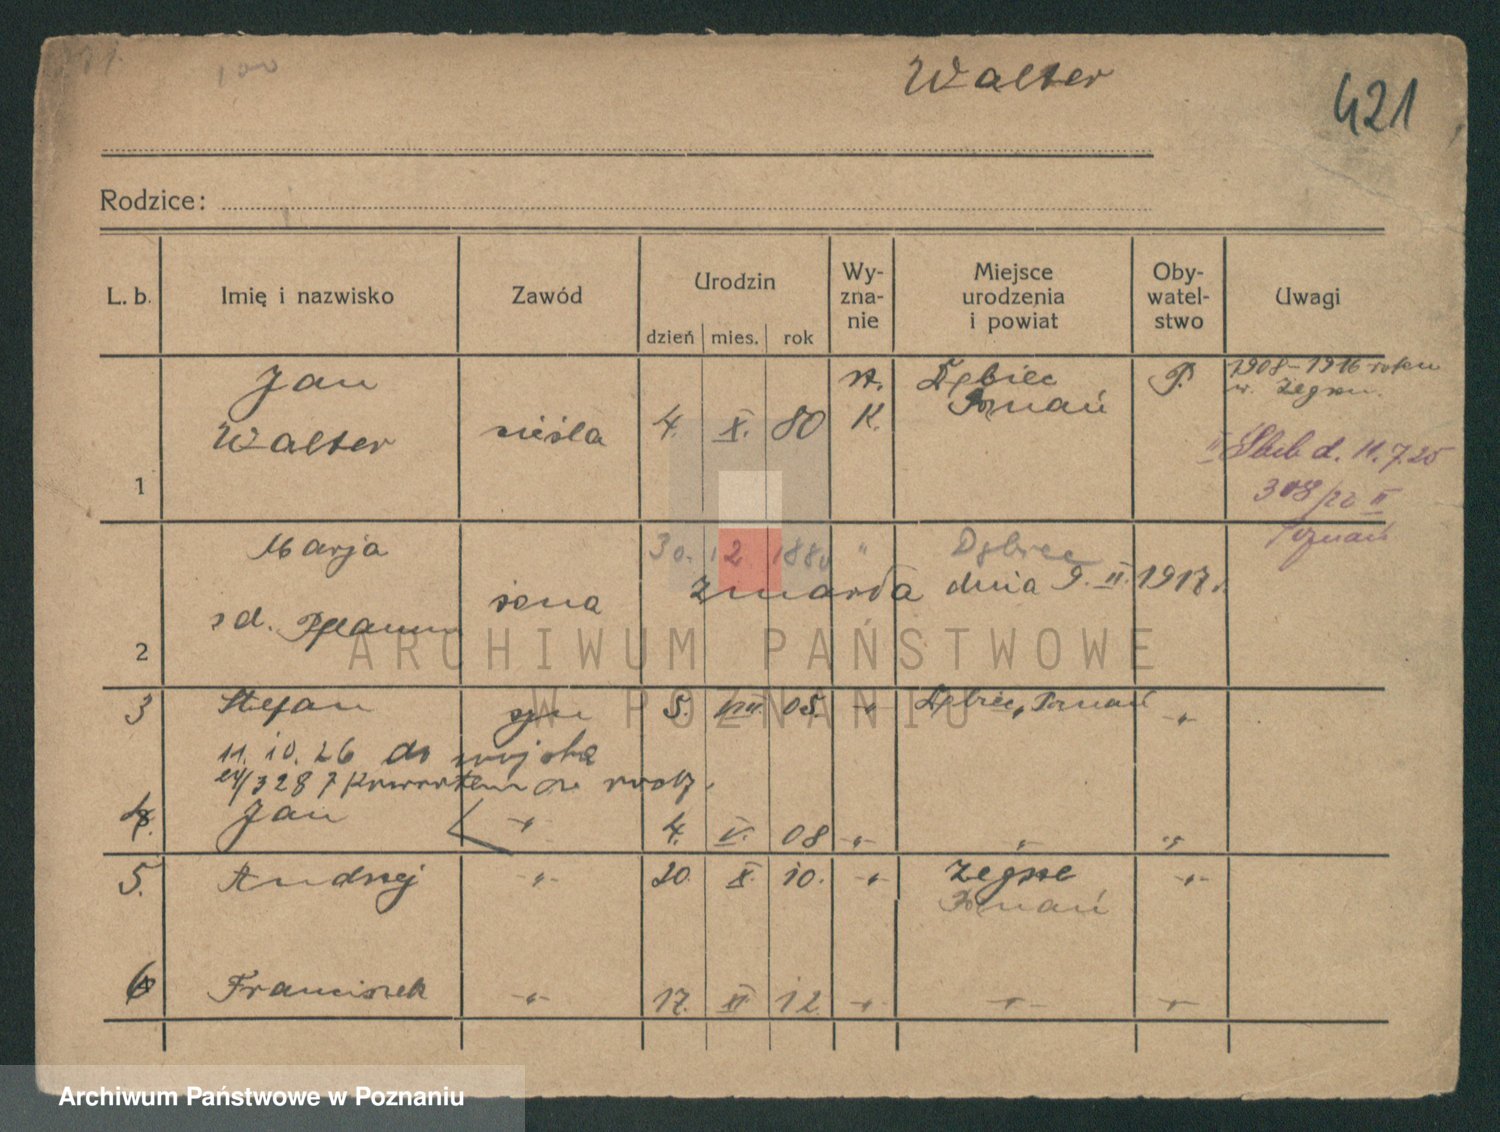 100
Walter
421
Rodzice:
L. b. Imię i nazwisko Zawód Urodzin dzień mies. rok Wyznanie Miejsce urodzenia i powiat Obywatelstwo Uwagi
1 Jan Walter cieśla 4. X. 80 K. Dębiec Poznań P. 1908–1916 roku w. Żegrzu.
II Ślub d. 11.7.25
308/20 II
Poznań
2 Marja żona 30. 12. 1880 " Dębiec
zmarła dnia 9. II. 1917 r.
3 Stefan syn 5. VIII 05. -"- Dębiec, Poznań -"-
11. 10. 26 do wojska
4. Jan -"- 4. V. 08 -"- -"- -"-
5. Andrzej -"- 20. X. 10. -"- Żegrze Poznań -"-
6 Franciszek -"- 17. XI 12. -"- -"- -"-
ARCHIWUM PAŃSTWOWE
W POZNANIU
Archiwum Państwowe w Poznaniu